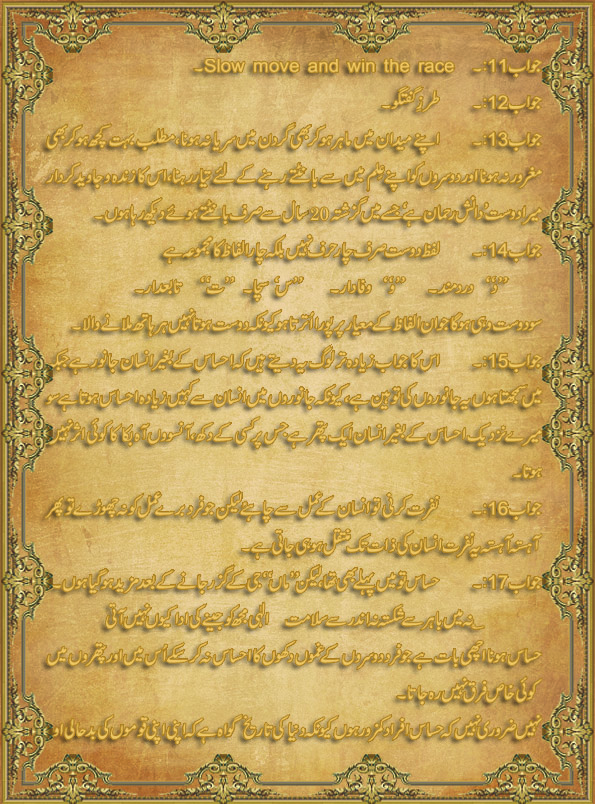 جواب11:۔ Slow move and win the race۔
جواب12:۔ طرزِ گفتگو۔
جواب13:۔ اپنے میدان میں ماہر ہو کر بھی گردن میں سریا نہ ہونا، مطلب بہت کچھ ہو کر بھی
مغرور نہ ہونا اور دوسروں کو اپنے علم میں سے بانٹتے رہنے کے لئے تیار رہنا، اس کا زندہ و جاوید کردار
میرا دوست ’دانش رحمان ہے‘ جسے میں گزشتہ 20 سال سے صرف بانٹتے ہوئے دیکھ رہا ہوں۔
جواب14:۔ لفظ دوست صرف چار حرف نہیں بلکہ چار الفاظ کا مجموعہ ہے
”د“ دردمند۔ ”و“ وفادار۔ ”س“ سچا۔ ”ت“ تابعدار۔
سو دوست وہی ہو گا جو ان الفاظ کے معیار پر پورا اُترتا ہو کیونکہ دوست ہوتا نہیں ہر ہاتھ ملانے والا۔
جواب15:۔ اس کا جواب زیادہ تر لوگ یہ دیتے ہیں کہ احساس کے بغیر انسان جانور ہے جبکہ
میں سمجھتا ہوں یہ جانوروں کی توہین ہے، کیونکہ جانوروں میں انسان سے کہیں زیادہ احساس ہوتا ہے سو
میرے نزدیک احساس کے بغیر انسان ایک پتھر ہے جس پر کسی کے دکھ، آنسووں آہ بکا کا کوئی اثر نہیں
ہوتا۔
جواب16:۔ نفرت کرنی تو انسان کے عمل سے چاہئے لیکن جو فرد برے عمل کو نہ چھوڑے تو پھر
آہستہ آہستہ یہ نفرت انسان کی ذات تک منتقل ہو ہی جاتی ہے۔
جواب17:۔ حساس تو میں پہلے بھی تھا لیکن ”ماں“ جی کے گزر جانے کے بعد مزید ہو گیا ہوں۔
؎ نہ میں باہر سے شکستہ نہ اندر سے سلامت الٰہی مجھ کو جینے کی ادا کیوں نہیں آتی
حساس ہونا اچھی بات ہے جو فرد دوسروں کے غموں دکھوں کا احساس نہ کر سکے اُس میں اور پتھروں میں
کوئی خاص فرق نہیں رہ جاتا۔
نہیں ضروری نہیں کہ حساس افراد کمزور ہوں کیونکہ دنیا کی تاریخ گواہ ہے کہ اپنی اپنی قوموں کی بدحالی او